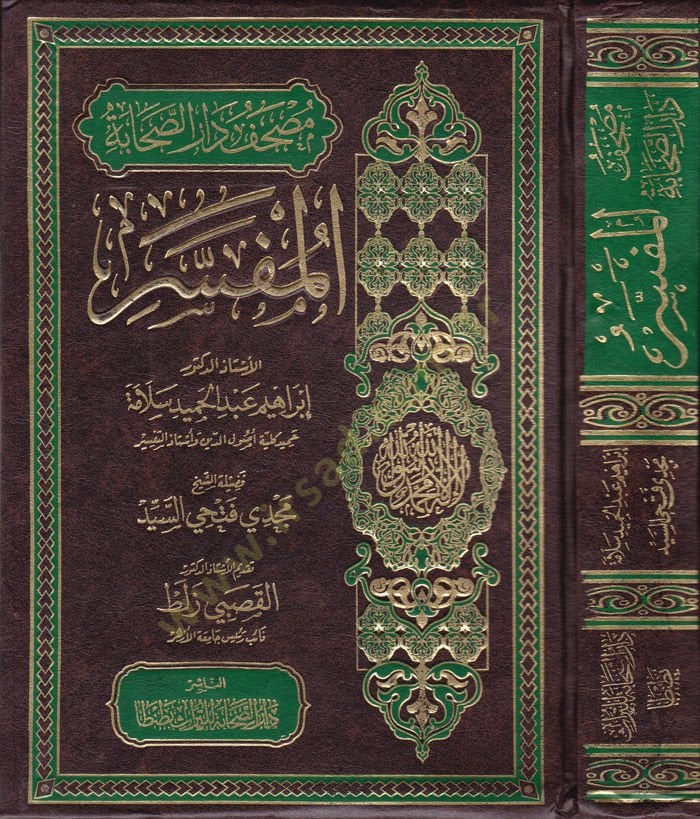 مصحف دار الصحابة
المفسر
الأستاذ الدكتور
إبراهيم عبد الحميد سلامة
عميد كلية أصول الدين وأستاذ التفسير
فضيلة الشيخ
مجدي فتحي السيد
تقديم الأستاذ الدكتور
القصبي زلط
نائب رئيس جامعة الأزهر
الناشر
دار الصحابة للتراث بطنطا
لا إله إلا الله محمد رسول الله
مصحف دار الصحابة
المفسر
إبراهيم عبد الحميد سلامة
مجدي فتحي السيد
دار الصحابة للتراث
بطنطا